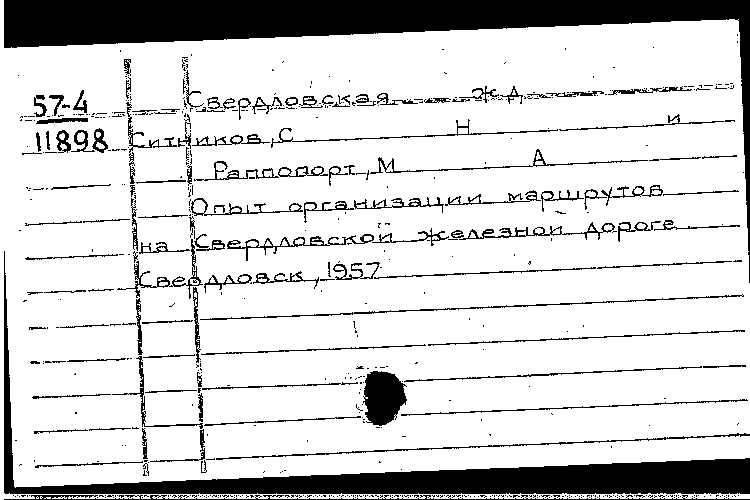 57-4 Свердловская ж.д.
11898 Ситников, С Н и
Раппопорт, М А
Опыт организации маршрутов
на Свердловской железной дороге
Свердловск, 1957